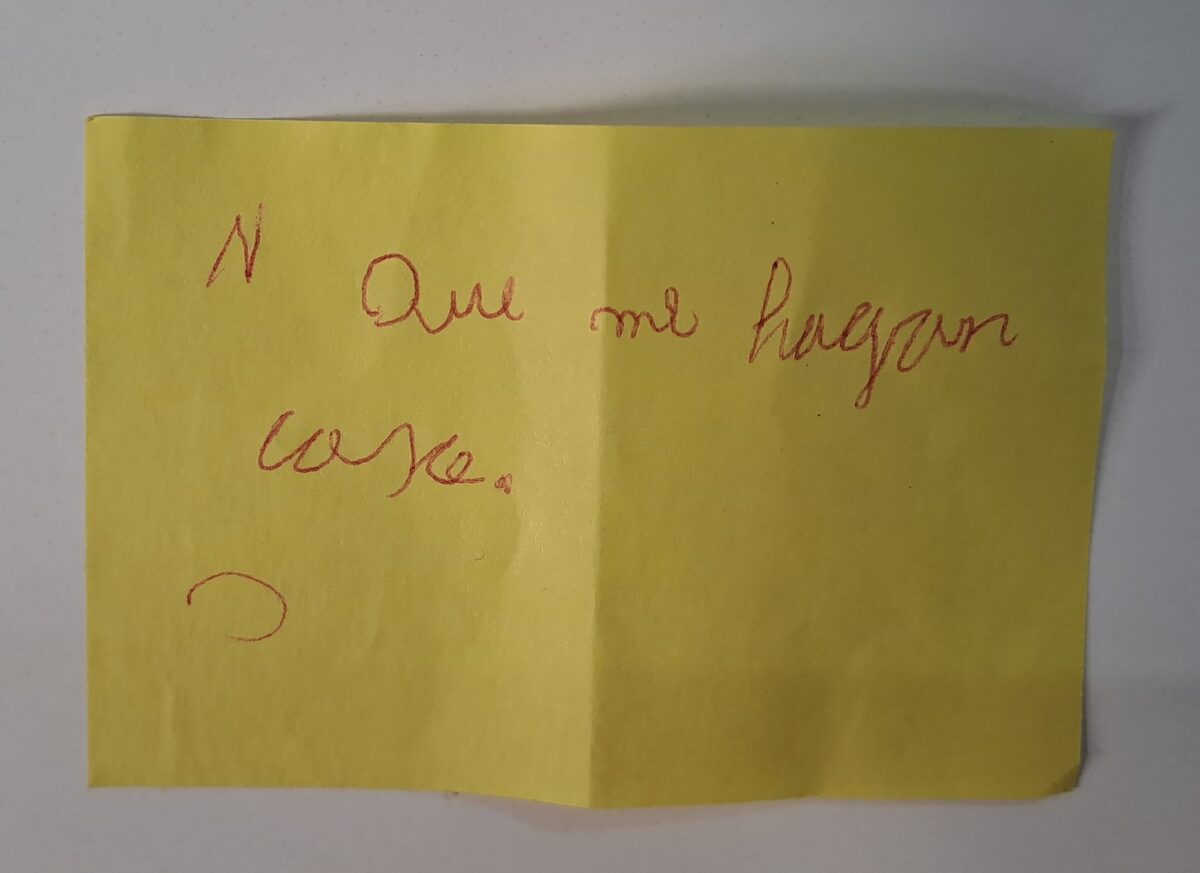 N
Que me hagan
caso.